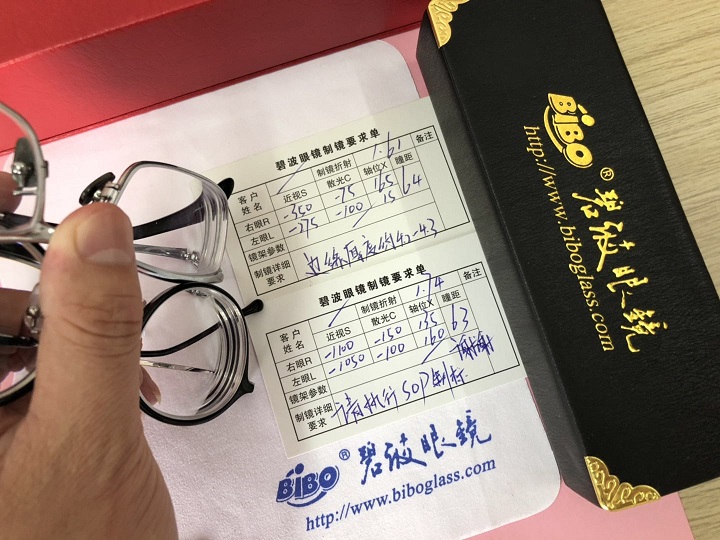 碧波眼镜制镜要求单
客户姓名 制镜折射 1.61 备注
近视S 散光C 轴位X 瞳距
右眼R -350 -75 165 64
左眼L -275 -100 15
镜架参数
制镜详细要求 边缘厚度约
碧波眼镜制镜要求单
客户姓名 制镜折射 1.74 备注
近视S 散光C 轴位X 瞳距
右眼R -1100 -150 135 63
左眼L -1050 -100 160
镜架参数 谢谢
制镜详细要求 请执行SOP制标
BiBO ® 碧波眼镜
http://www.biboglass.com
BiBO ® 碧波眼镜
http://www.biboglass.com